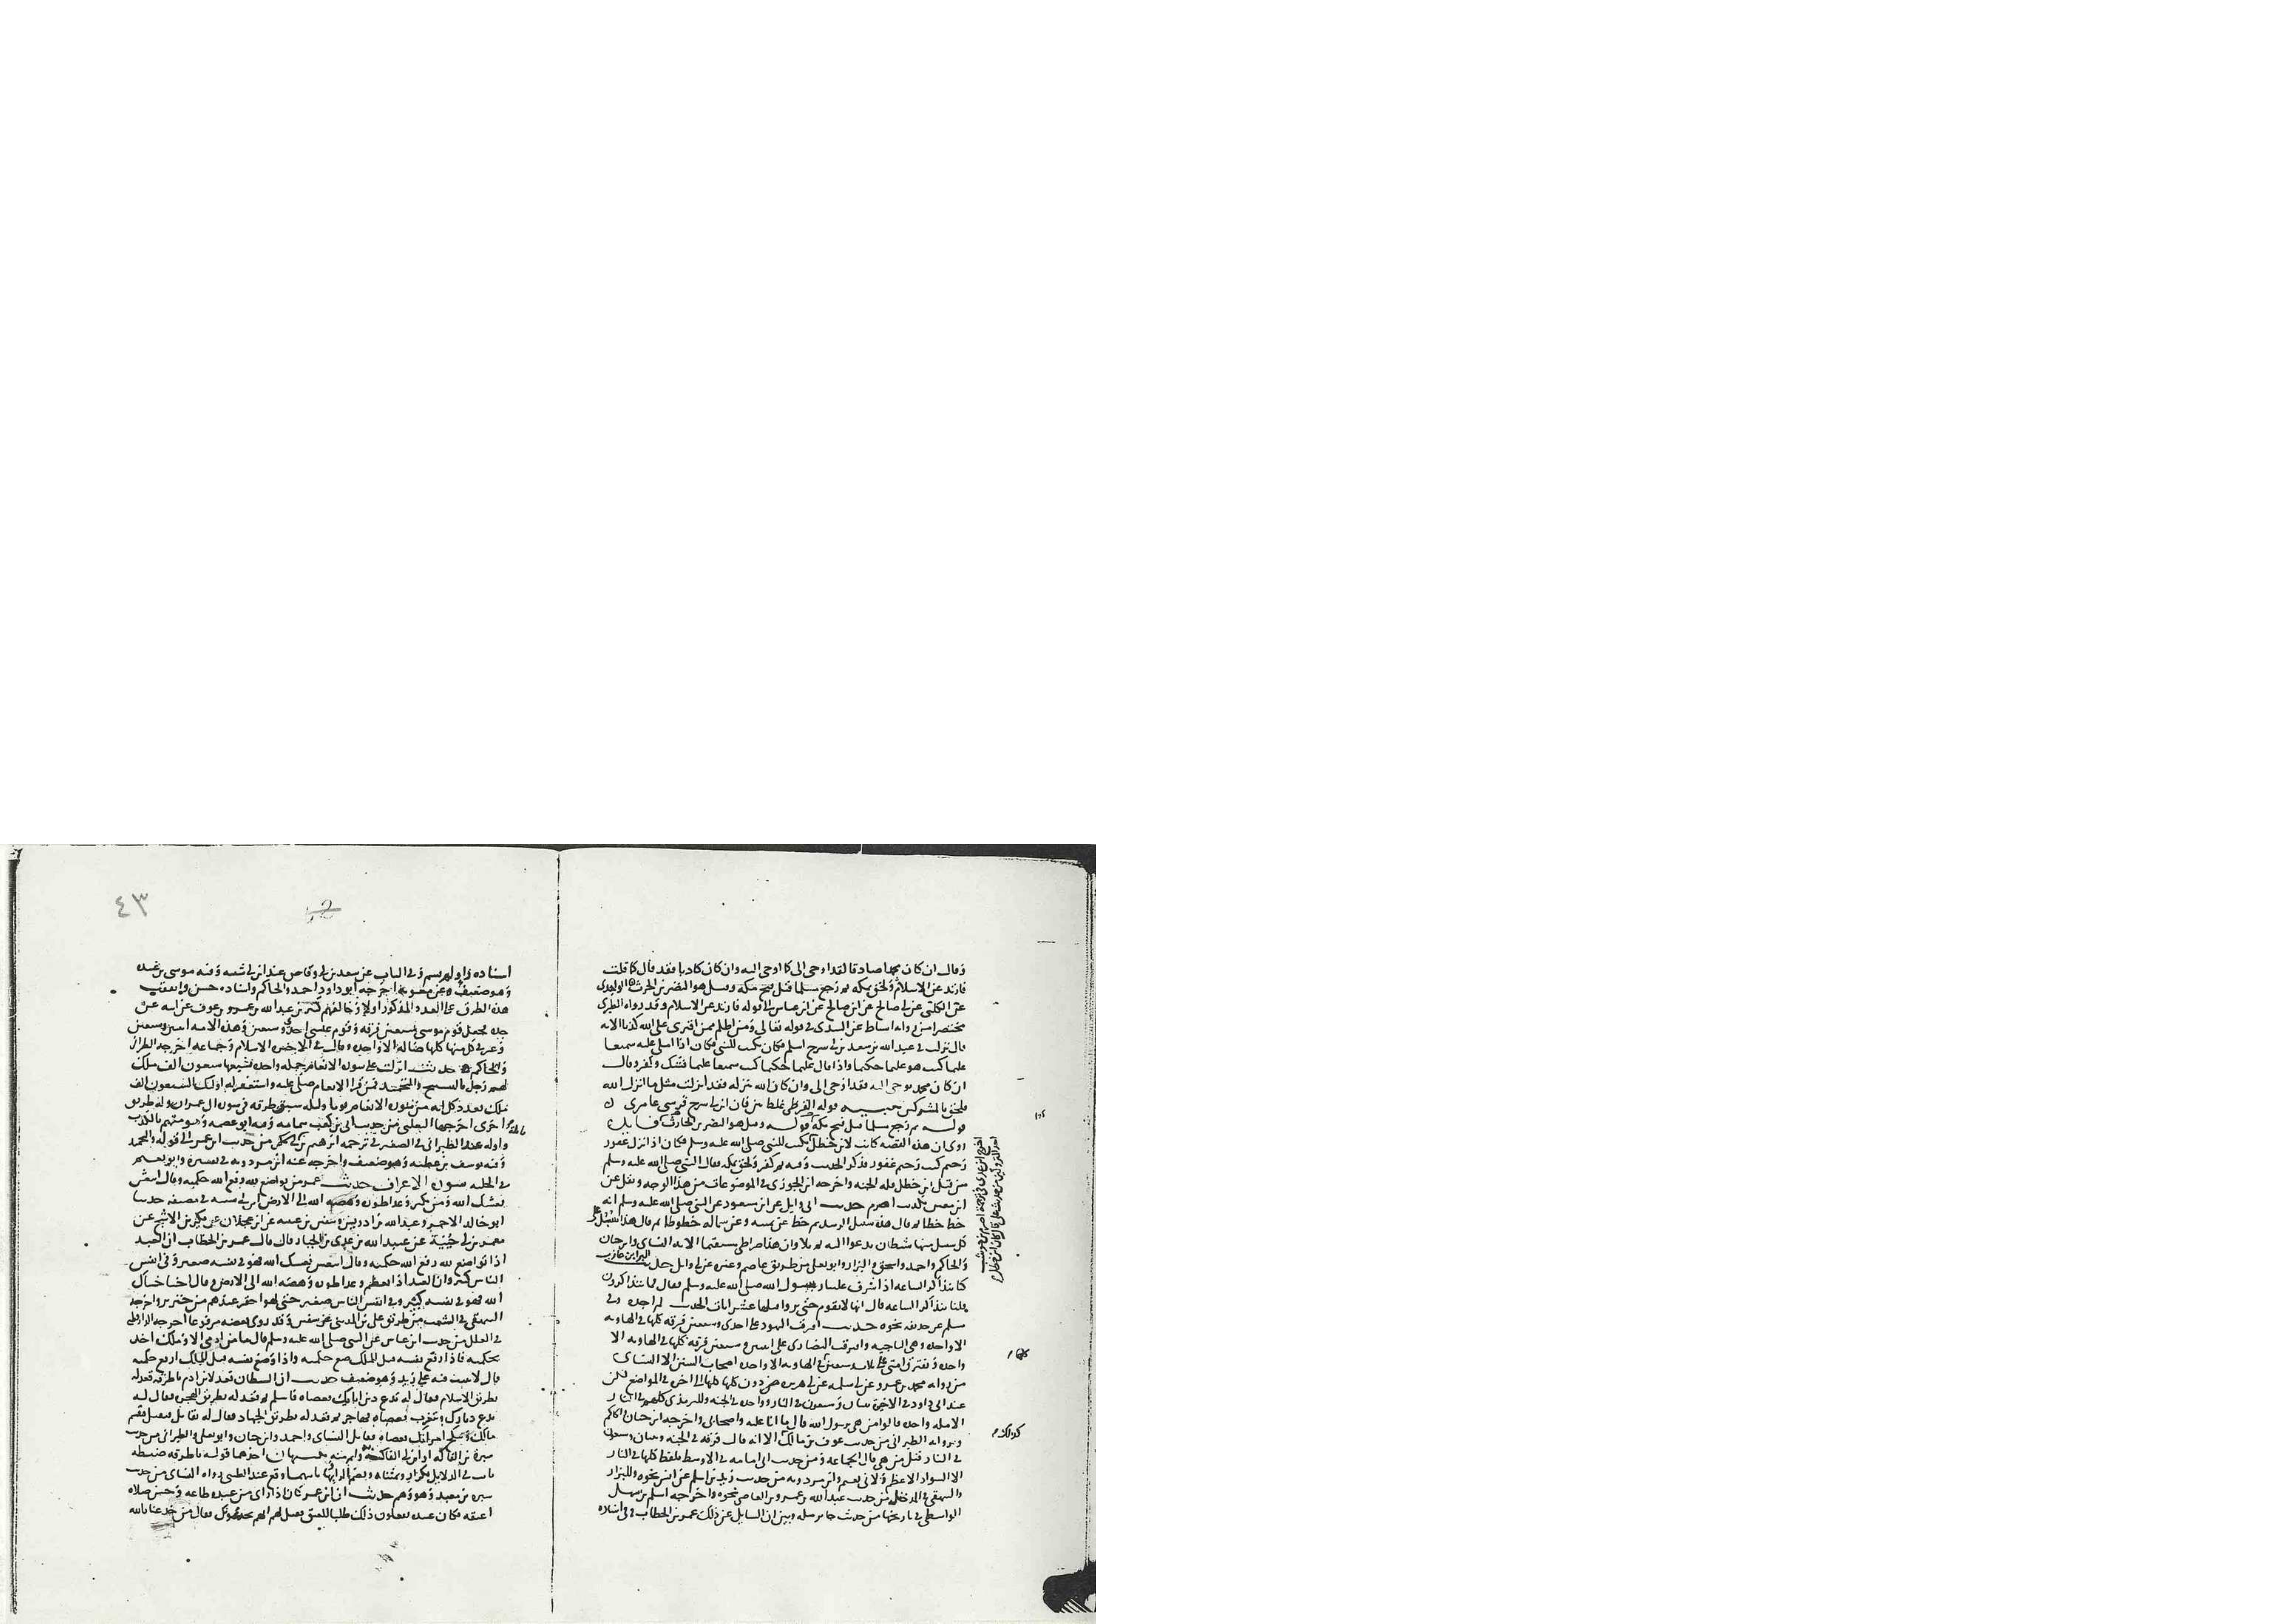 وقال ان كان محمد اصادقا لقد اوحى الى كما اوحى اليه وان كان كاذبا فقد قال كما قلت
فارتد عن الاسلام ولحق بمكه ثم رجع مسلما قبل فتح مكه وقيل هو النضر بن الحرث الواحدى
عن الكلبى عن ابى صالح عن ابن عباس الى قوله فارتد عن الاسلام وقد رواه الطبرى
مختصرا من روايه اسباط عن السدى فى قوله تعالى ومن اظلم ممن افترى على الله كذبا الايه
قال نزلت فى عبد الله بن سعد بن ابى سرح اسلم فكان يكتب للنبى فكان اذا املى عليه سميعا
عليما كتب هو عليما حكيما واذا قال عليما حكيما كتب سميعا عليما فشك وكفر وقال
ان كان محمد يوحى اليه فقد اوحى الى وان كان الله ينزله فقد انزلت مثل ما انزل الله
فلحق بالمشركين قوله القرظى غلط بين فان ابن ابى سرح قرشى عامرى
قوله ثم رجع مسلما قبل فتح مكه قوله وقيل هو النضر بن الحارث
روى ان هذه القصه كانت لابن خطل يكتب للنبى صلى الله عليه وسلم فكان اذا نزل غفور
رحيم كتب رحيم غفور فذكر الحديث وفيه ثم كفر ولحق بمكه فقال النبى صلى الله عليه وسلم
من قتل ابن خطل فله الجنه واخرجه ابن الجوزى فى الموضوعات من هذا الوجه ونقل عن
ابن معين تكذيب اصرم حديث ابى وايل عن ابن مسعود عن النبى صلى الله عليه وسلم انه
خط خطا ثم قال هذا سبيل الرشد ثم خط عن يمينه وعن شماله خطوطا ثم قال هذا سبل على
كل سبيل منها شيطان يدعوا اليه ثم تلا وان هذا صراطى مستقيما الايه النساى وابن حبان
والحاكم واحمد واسحق والبزار وابو يعلى من طريق عاصم وغيره عن ابى وايل حديث البرا بن عازب
كنا نتذاكر الساعه اذ اشرف علينا رسول الله صلى الله عليه وسلم فقال ما تتذاكرون
قلنا نتذاكر الساعه قال انها لا تقوم حتى تروا قبلها عشر ايات الحديث لم اجده وفى
مسلم عن حذيفه نحوه حديث افترقت اليهود على احدى وسبعين فرقه كلها فى الهاويه
الا واحده وهى الناجيه وافترقت النصارى على اثنين وسبعين فرقه كلها فى الهاويه الا
واحده وتفترق امتى على ثلاث وسبعين فى الهاويه الا واحده اصحاب السنن الا النساى
من روايه محمد بن عمرو عن ابى سلمه عن ابى هريره دون كلها كلها الى اخره فى المواضع لكن
عند ابى داود فى الاخيره ثنتان وسبعون فى النار وواحده فى الجنه وللترمذى كلهم فى النار
الا مله واحده قالوا من هى يرسول الله قال ما انا عليه واصحابى واخرجه ابن حبان والحاكم
وروايه الطبرانى من حديث عوف بن مالك الا انه قال فرقه فى الجنه وثنتان وسبعون
فى النار قيل من هى قال الجماعه ومن حديث ابى امامه فى الاوسط بلفظ كلها فى النار
الا السواد الاعظم ولابى نعيم وابن مردويه من حديث زيد بن اسلم عن انس نحوه وللبزار
والبيهقى فى المدخل من حديث عبد الله بن عمرو بن العاصى نحوه واخرجه اسلم بن سهل
الواسطى فى تاريخها من حديث جابر مثله وبين ان السايل عن ذلك عمر بن الخطاب وفى اسناده
٤٣
اسناده راو لم يسم وفى الباب عن سعد بن ابى وقاص عند ابن ابى شيبه وفيه موسى بن عبيده
وهو ضعيف وعن معويه اخرجه ابو داود احمد والحاكم واسناده حسن واتفقت
هذه الطرق على العدد المذكور اولا وخالفهم كثير بن عبد الله بن عمرو بن عوف عن ابيه عن
جده فجعل قوم موسى سبعين فرقه وقوم عيسى احدى وسبعين وهذه الامه اثنين وسبعين
وقال فى كل منها كلها ضاله الا واحده وقال فى الاخيره الاسلام وجماعه اخرجه الطبرانى
والحاكم حديث انزلت على سوره الانعام جمله واحده يشيعها سبعون الف ملك
لهم زجل بالتسبيح والتحميد فمن قرا الانعام صلى عليه واستغفر له اولئك السبعون الف
ملك بعدد كل ايه من سوره الانعام يوما وليله سبق طرقه فى سوره ال عمران وله طريق
اخرى اخرجها الثعلبى من حديث ابى بن كعب بتمامه وفيه ابو عصمه وهو متهم بالكذب
واوله عند الطبرانى فى الصغير فى ترجمه ابرهيم بن نايله من حديث ابن عمر الى قوله والتحميد
وفيه يوسف بن عطيه وهو ضعيف واخرجه عنه ابن مردويه فى تفسيره وابو نعيم
فى الحليه سوره الاعراف حديث عمر من تواضع لله رفع الله حكمته وقال انتعش
نعشك الله ومن تكبر وعدا طوره وهصه الله الى الارض ابن ابى شيبه فى مصنفه حدثنا
ابو خالد الاحمر وعبد الله بن ادريس وسفين بن عيينه عن ابن عجلان عن بكير بن الاشج عن
معمر بن ابى حبيبة عن عبيد الله بن عدى بن الخيار قال قال عمر بن الخطاب ان العبد
اذا تواضع لله رفع الله حكمته وقال انتعش نعشك الله فهو فى نفسه صغير وفى انفس
الناس كبير وان العبد اذا تعظم وعدا طوره وهصه الله الى الارض وقال اخسا خساك
الله فهو فى نفسه كبير وفى انفس الناس صغير حتى لهو احقر عندهم من خنزير واخرجه
البيهقى فى الشعب من طريق على بن المدينى عن سفين وقد روى بعضه مرفوعا اخرجه الدارقطنى
فى العلل من حديث ابن عباس عن النبى صلى الله عليه وسلم قال ما من ادمى الا وملك اخذ
بحكمته فاذا رفع نفسه قيل للملك ضع حكمته واذا وضع نفسه قيل للملك ارفع حكمته
قال لا يثبت فيه على بن زيد وهو ضعيف حديث ان الشيطان قعد لابن ادم باطرقه قعد له
بطريق الاسلام فقال له تدع دين ابايك فعصاه فاسلم ثم قعد له بطريق الهجره فقال له
تدع ديارك وتتغرب فعصاه فهاجر ثم قعد له بطريق الجهاد فقال له تقاتل فتقتل فيقسم
مالك وتنكح امراتك فعصاه فقاتل النساى واحمد وابن حبان وابو يعلى والطبرانى من حديث
سبره بن الفاكه او ابن ابى الفاكه احدهما قوله باطرقه ضبطه
ثابت فى الدلايل وقع عند الطبرى رواه النساى من حديث
سبره بن معبد وهو وهم حديث ان ابن عمر كان اذا راى من عبده طاعه وحسن صلاه
اعتقه فكان عبيده يفعلون ذلك طلبا للعتق فقيل له انهم يخدعونك فقال من خدعنا بالله